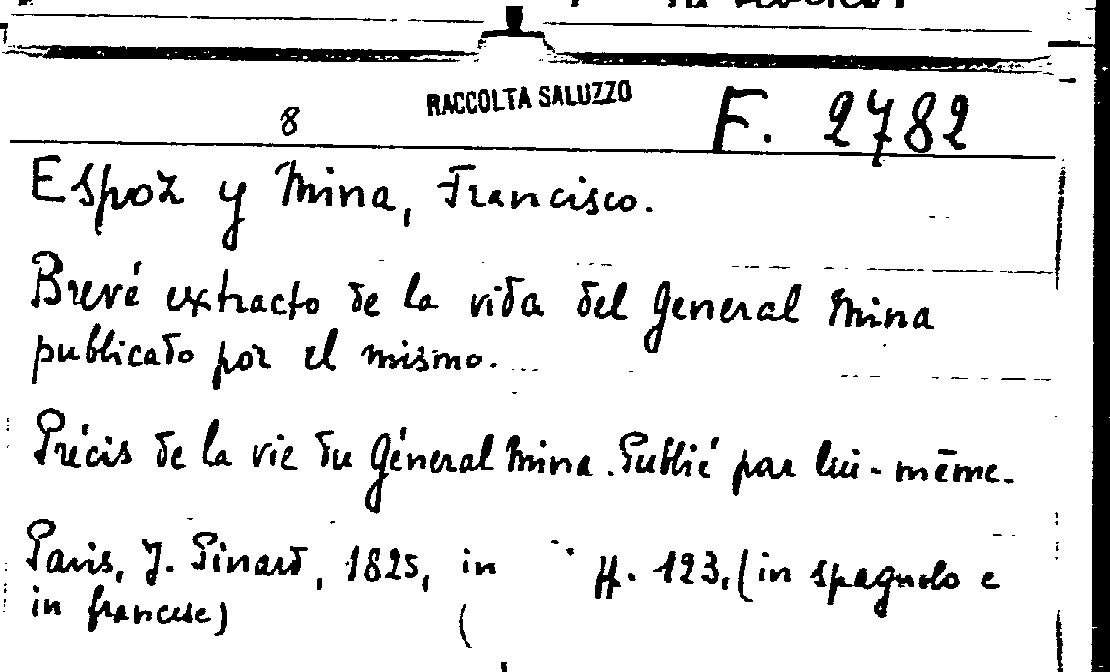 RACCOLTA SALUZZO
8
F. 2782
Espoz y Mina, Francisco.
Brevé extracto de la vida del General Mina
publicado por el mismo.
Précis de la vie du Général Mina. Publié par lui-même.
Paris, J. Pinard, 1825, in pp. 123, (in spagnolo e
in francese)